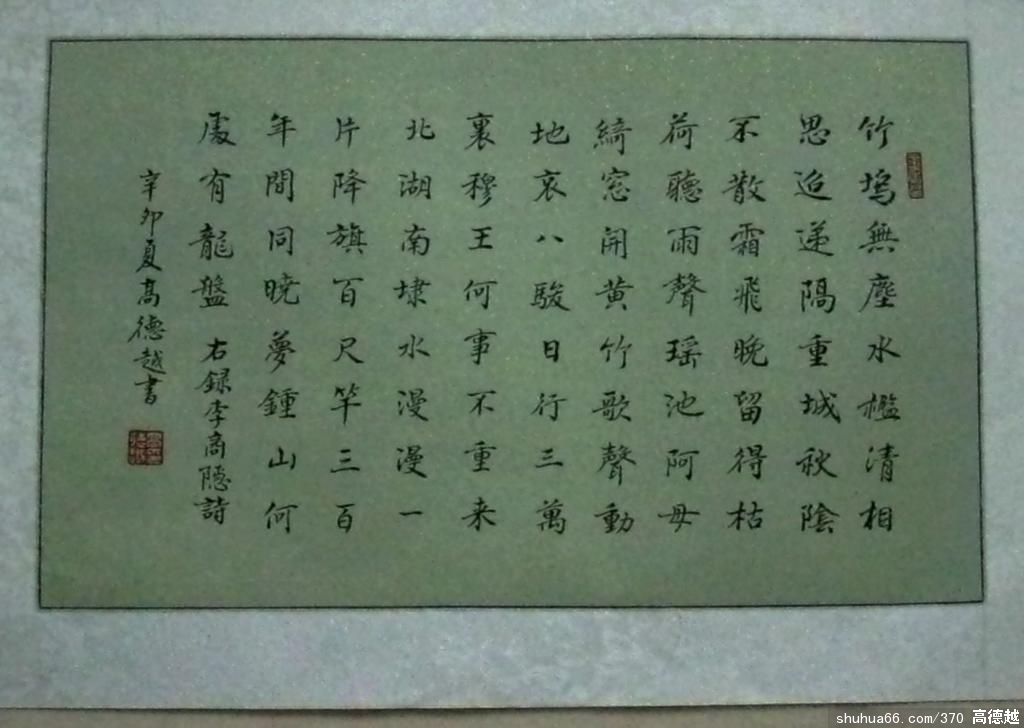 竹塢無塵水檻清相
思迢遞隔重城秋陰
不散霜飛晚留得枯
荷聽雨聲瑶池阿母
綺窓開黄竹歌聲動
地哀八駿日行三萬
裏穆王何事不重来
北湖南埭水漫漫一
片降旗百尺竿三百
年間同曉夢鍾山何
處有龍盤 右録李商隱詩
辛卯夏高德越書
shuhua66.com/370 高德越